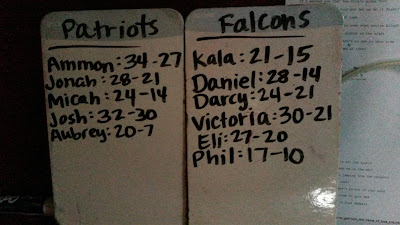 Patriots
Ammon: 34-27
Jonah: 28-21
Micah: 24-14
Josh: 32-30
Aubrey: 20-7
Falcons
Kala: 21-15
Daniel: 28-14
Darcy: 24-21
Victoria: 30-21
Eli: 27-20
Phil: 17-10